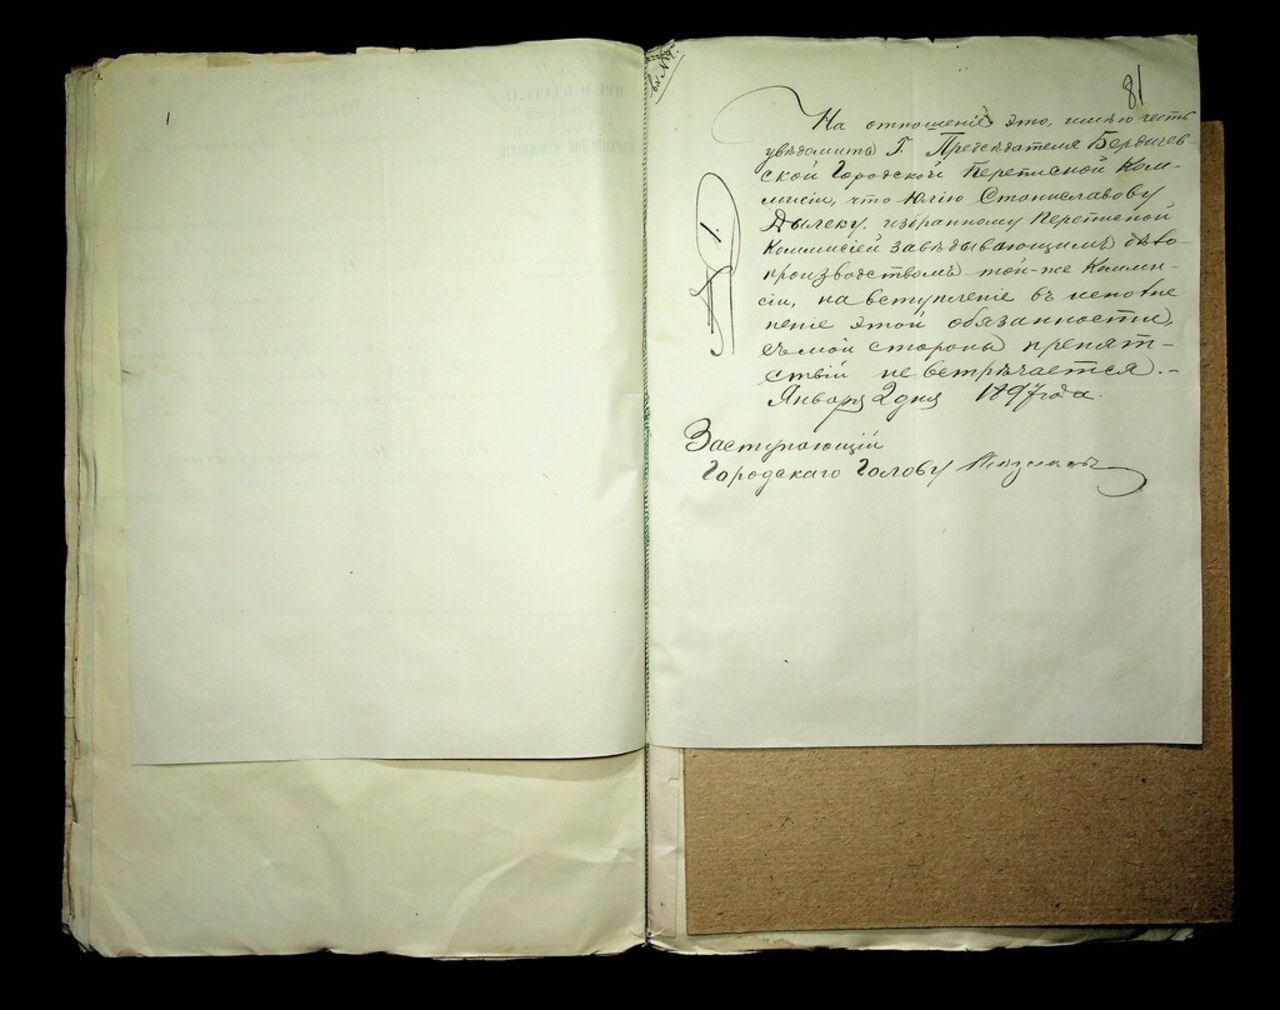 81
На отношеніе это, имѣю честь
увѣдомить Г. Предсѣдателя Бердичев-
ской Городской Переписной Ком-
мисіи, что Юлію Станиславову
избранному Переписной
Коммисіей завѣдывающимъ дѣло-
производствомъ той-же Комми-
сіи, на вступленіе въ исполне
неніе этой обязанности,
съ моей стороны препят-
ствій не встрѣчается.-
Января 2 дня 1897 года.
№ 1.
Заступающій
Городскаго Голову